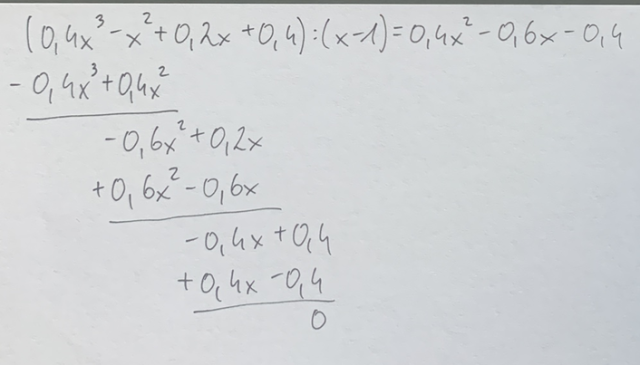 (0,4x³-x²+0,2x+0,4):(x-1)=0,4x²-0,6x-0,4
-0,4x³+0,4x²
-0,6x²+0,2x
+0,6x²-0,6x
-0,4x+0,4
+0,4x-0,4
0